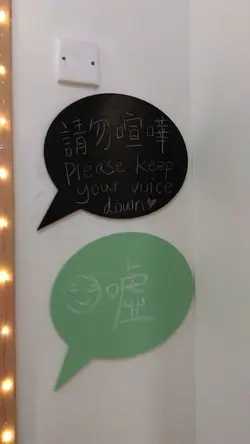 請勿喧嘩
Please keep
your vuice
down
噓